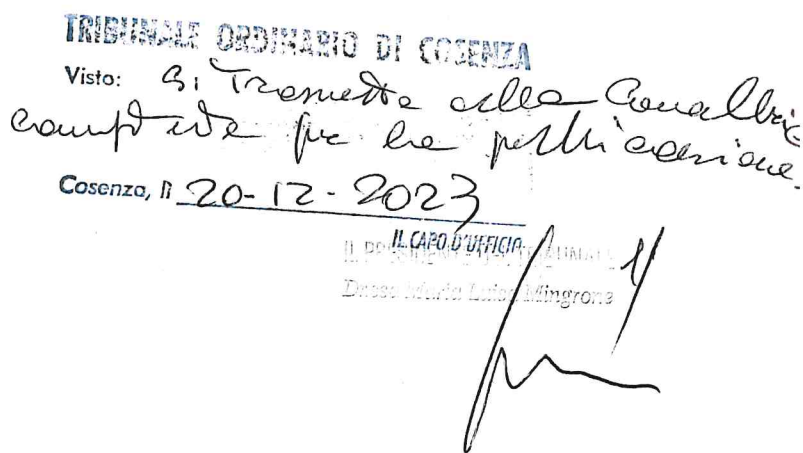 TRIBUNALE ORDINARIO DI COSENZA
Visto: Si Trasmette alla
per la pubblicazione.
Cosenza, lì 20-12-2023
IL CAPO D'UFFICIO
IL PRESIDENTE DEL TRIBUNALE
Dr.ssa Maria Luisa Mingrone